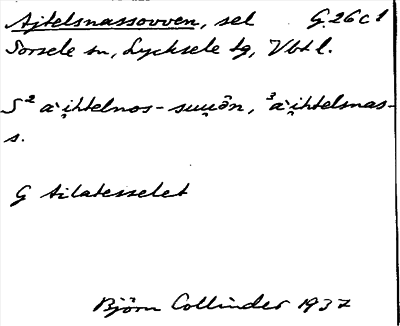 Ajtelsnassovven, sel G.26c1
Sorsele sn, Lycksele tg, Vbtl.
S² a·i̯htelnos-suu̯ôn, ³a·i̯htelsnas-
s.
G tilatesselet
Björn Collinder 1937